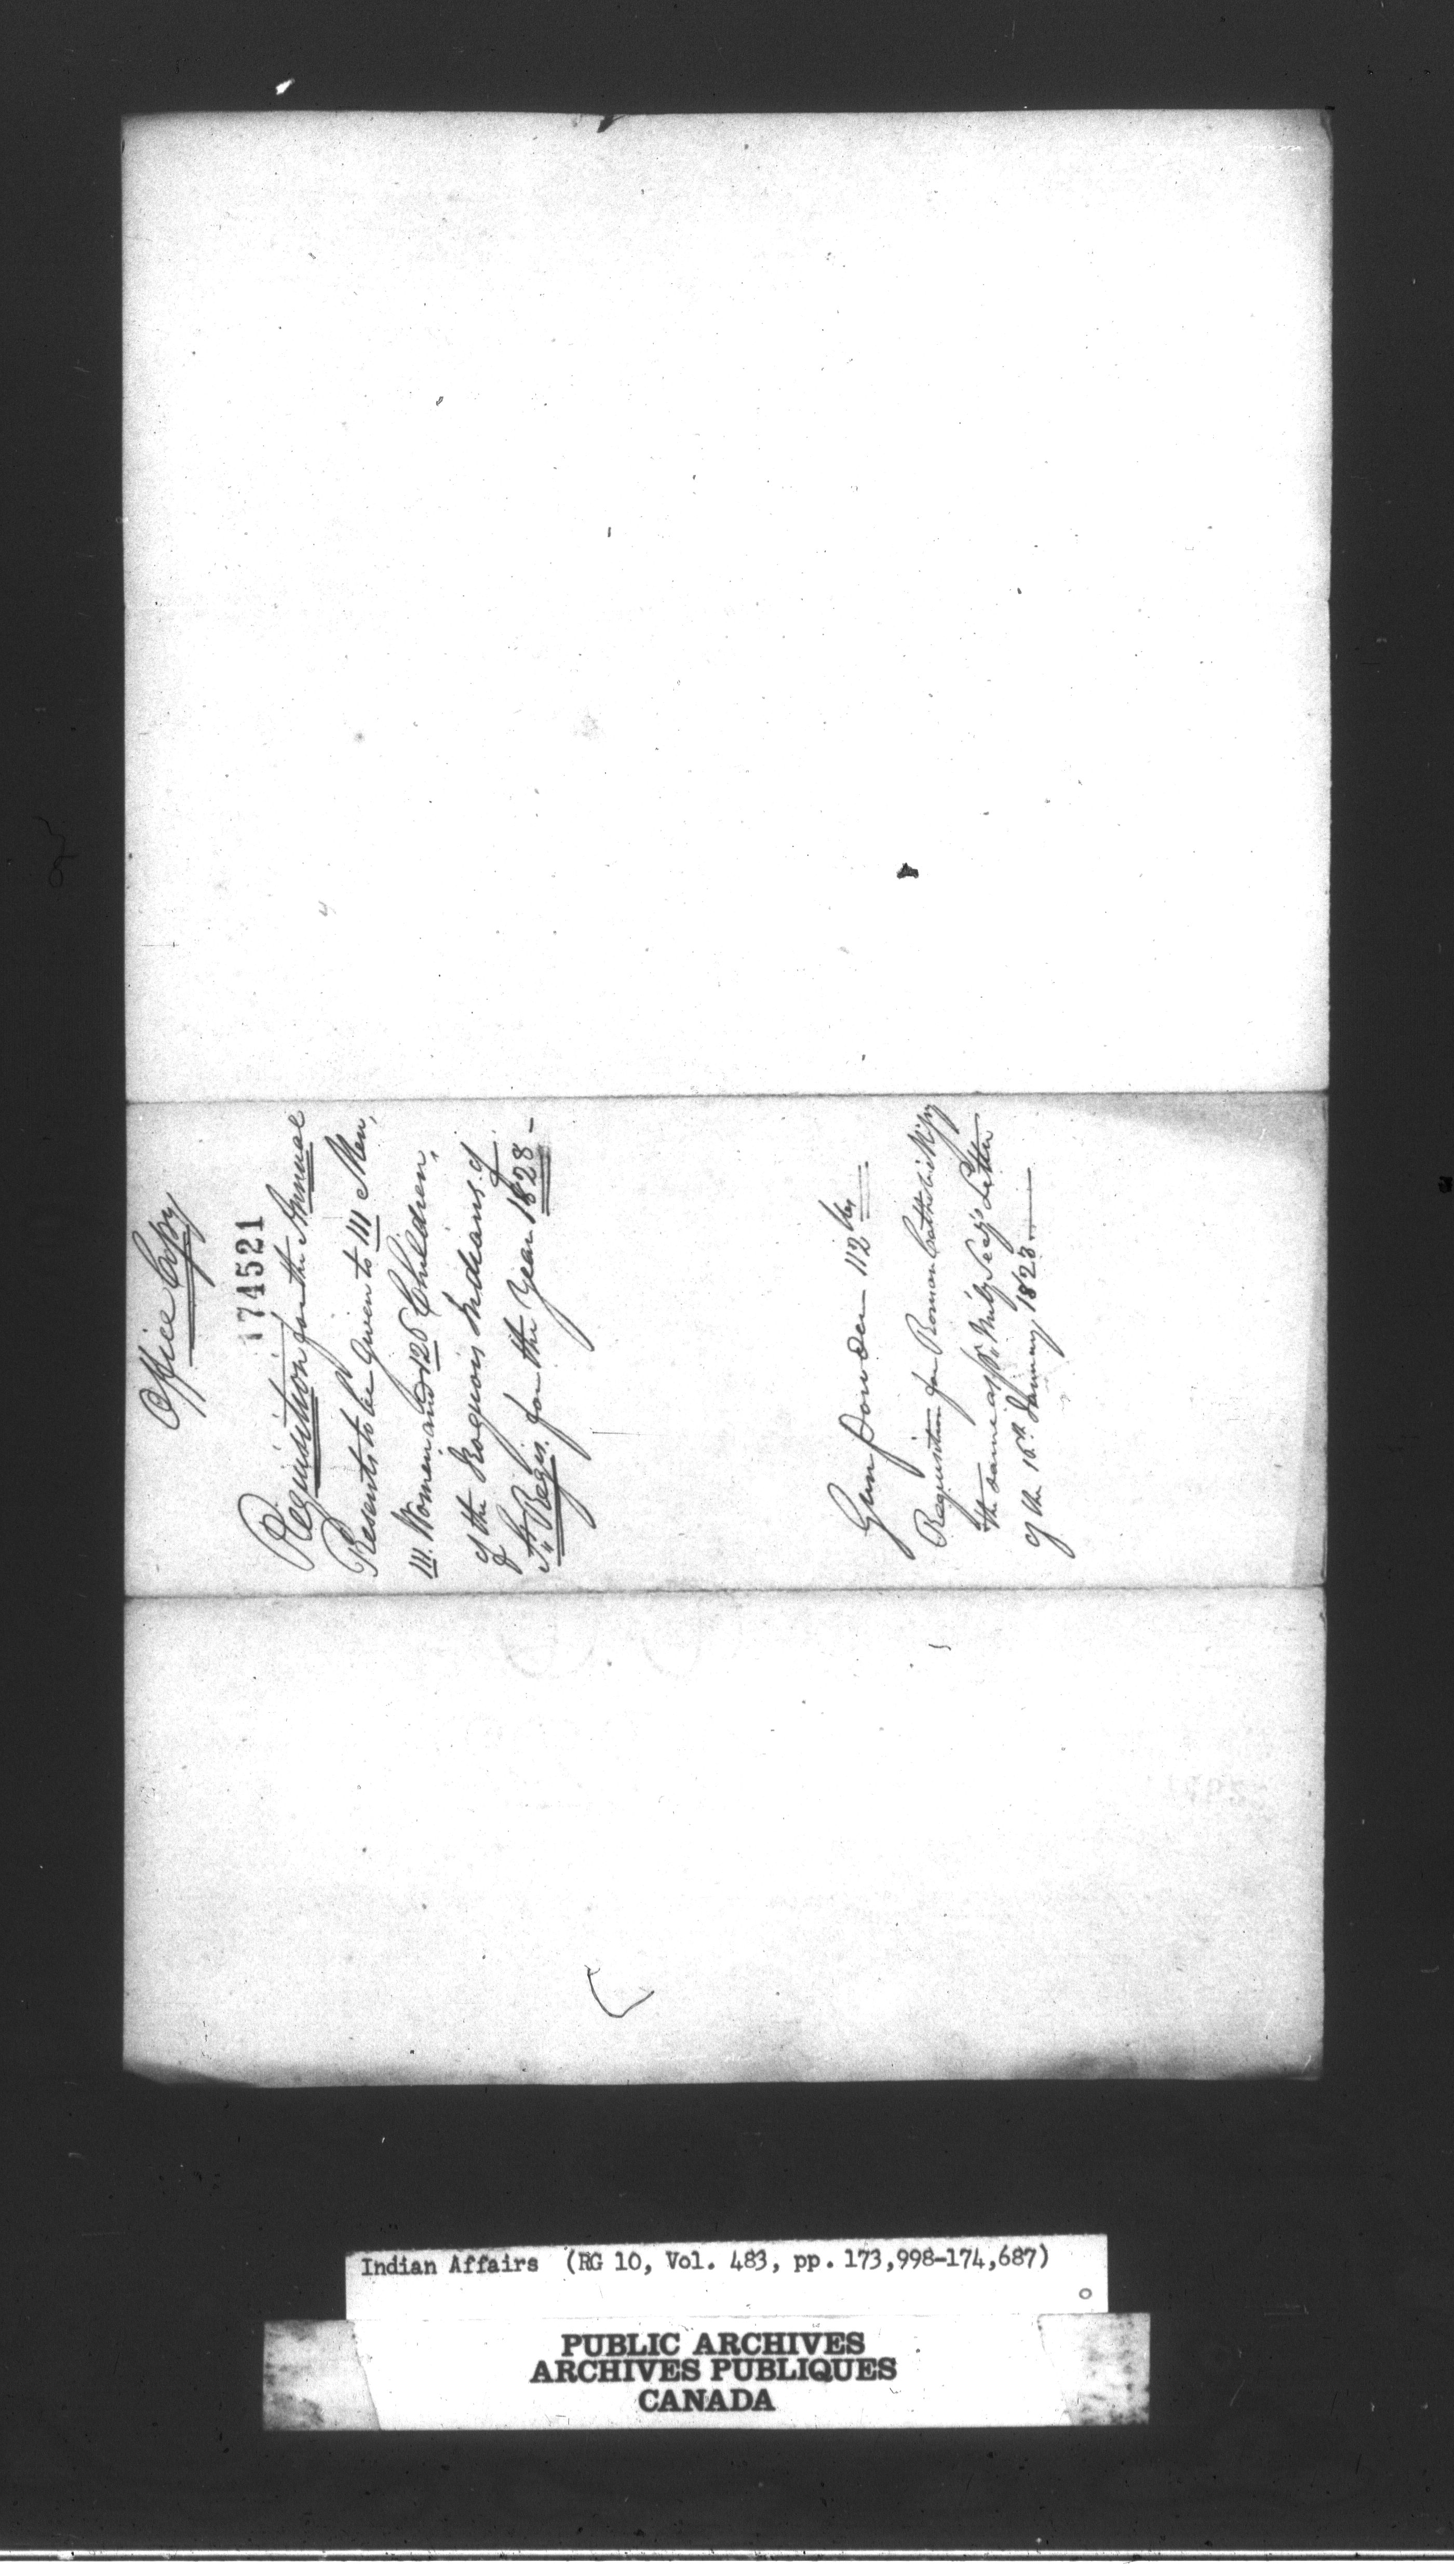 Office Copy
174521
Requisition for the Annual
Presents to be Given to 111 Men,
111 Women and 126 Children,
of the Iroquois Indians of
St Regis, for the Year 1823 -
Gunpowder 112 lbs
Requisition for Roman Catholic
the same as pr. Mily Secy's Letter
of the 16th January 1823
Indian Affairs (RG 10, Vol. 483, pp. 173,998-174,687)
PUBLIC ARCHIVES
ARCHIVES PUBLIQUES
CANADA